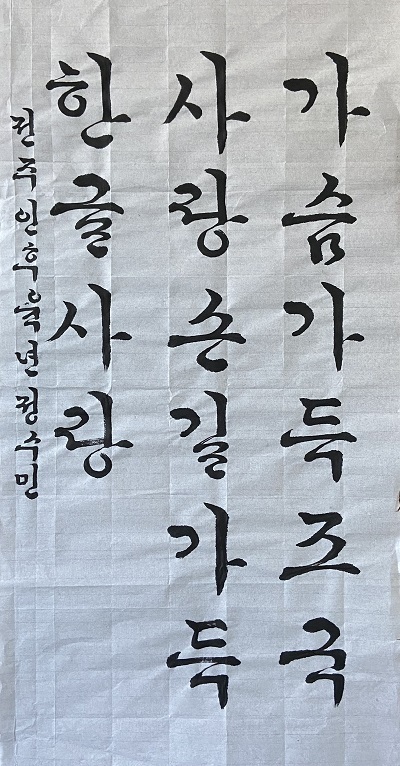 가슴가득조국
사랑손길가득
한글사랑
전주인후초학년정수민